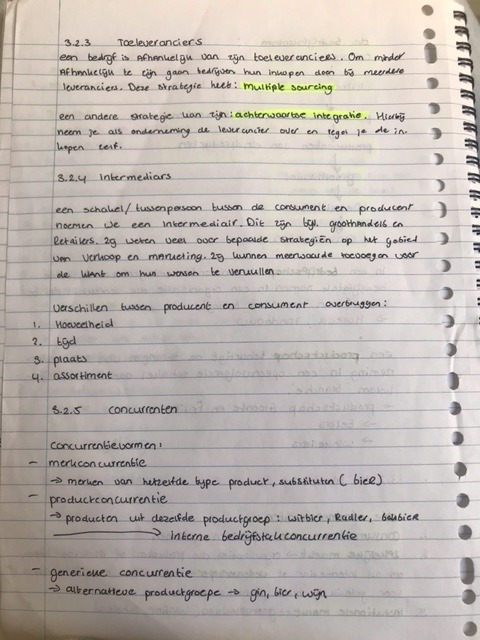 3.2.3 Toeleveranciers
een bedrijf is Afhankelijk van zijn toeleveranciers. Om minder
Afhankelijk te zijn gaan bedrijven hun inkopen doen bij meerdere
leveranciers. Deze strategie heet: multiple sourcing
een andere strategie kan zijn: achterwaartse integratie. Hierbij
neem je als onderneming de leverancier over en regel je de in-
kopen zelf.
3.2.4 Intermediars
een schakel / tussenpersoon tussen de consument en producent
noemen we een intermediair. Dit zijn bijv. groothandels en
Retailers. Zij weten veel over bepaalde strategiën op het gebied
van verkoop en marketing. Zij kunnen meerwaarde toevoegen voor
de klant om hun wensen te vervullen
Verschillen tussen producent en consument overbruggen:
1. Hoeveelheid
2. tijd
3. plaats
4. assortiment
3.2.5 concurrenten
Concurrentievormen:
- merkconcurrentie
→ merken van hetzelfde type product, substituten (bier)
- productconcurrentie
→ producten uit dezelfde productgroep: witbier, Radler, bokbier
→ Interne bedrijfstakconcurrentie
- generieke concurrentie
→ alternatieve productgroepe → gin, bier, wijn